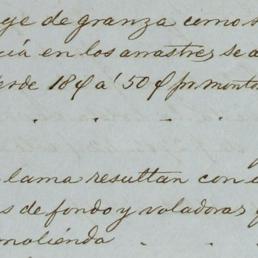 ge de granza como s
cia en los arrastres se a
erde 18 ȼ á 50 ȼ pr. monto
. . . .
lama resultan con e
s de fondo y voladoras g
molienda . .